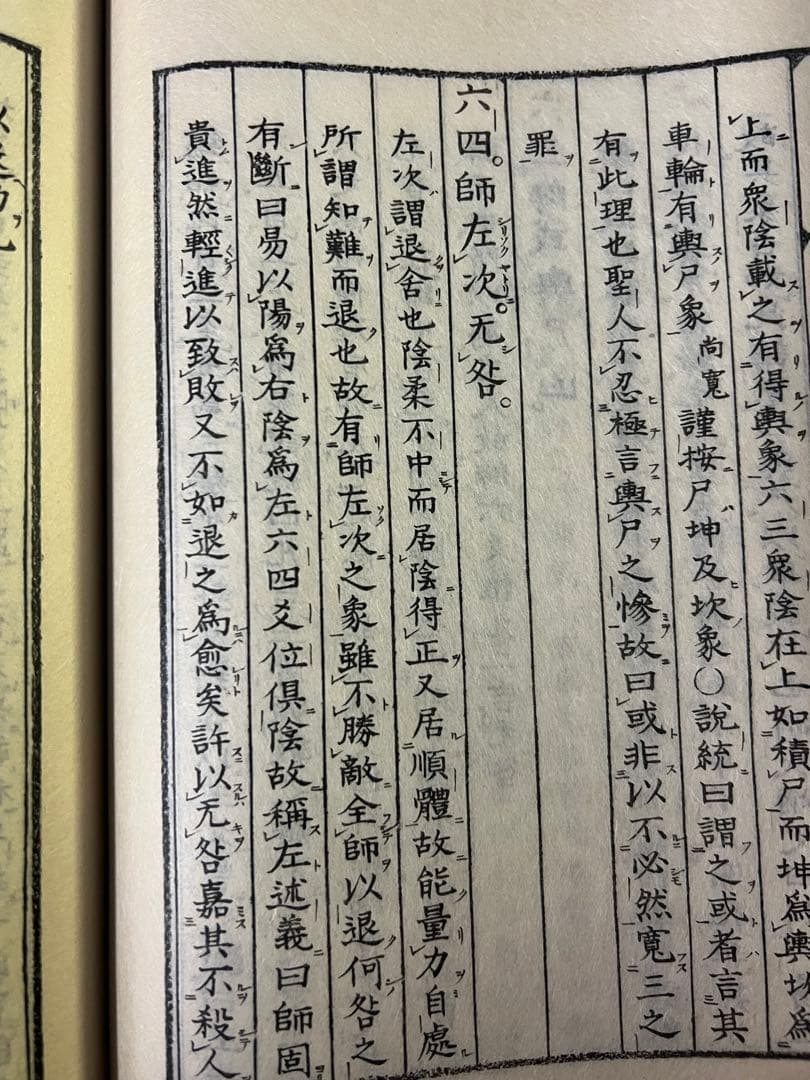 上而衆陰載之有得輿象六三衆陰在上如積尸而坤爲輿坎爲
車輪有輿尸象尚寬謹按尸坤及坎象○說統曰謂之或者言其
有此理也聖人不忍極言輿尸之慘故曰或非以不必然寬三之
罪
六四。師左次。无咎。
左次謂退舍也陰柔不中而居陰得正又居順體故能量力自處
所謂知難而退也故有師左次之象雖不勝敵全師以退何咎之
有斷曰易以陽爲右陰爲左六四爻位俱陰故稱左述義曰師固
貴進然輕進以致敗又不如退之爲愈矣許以无咎嘉其不殺人